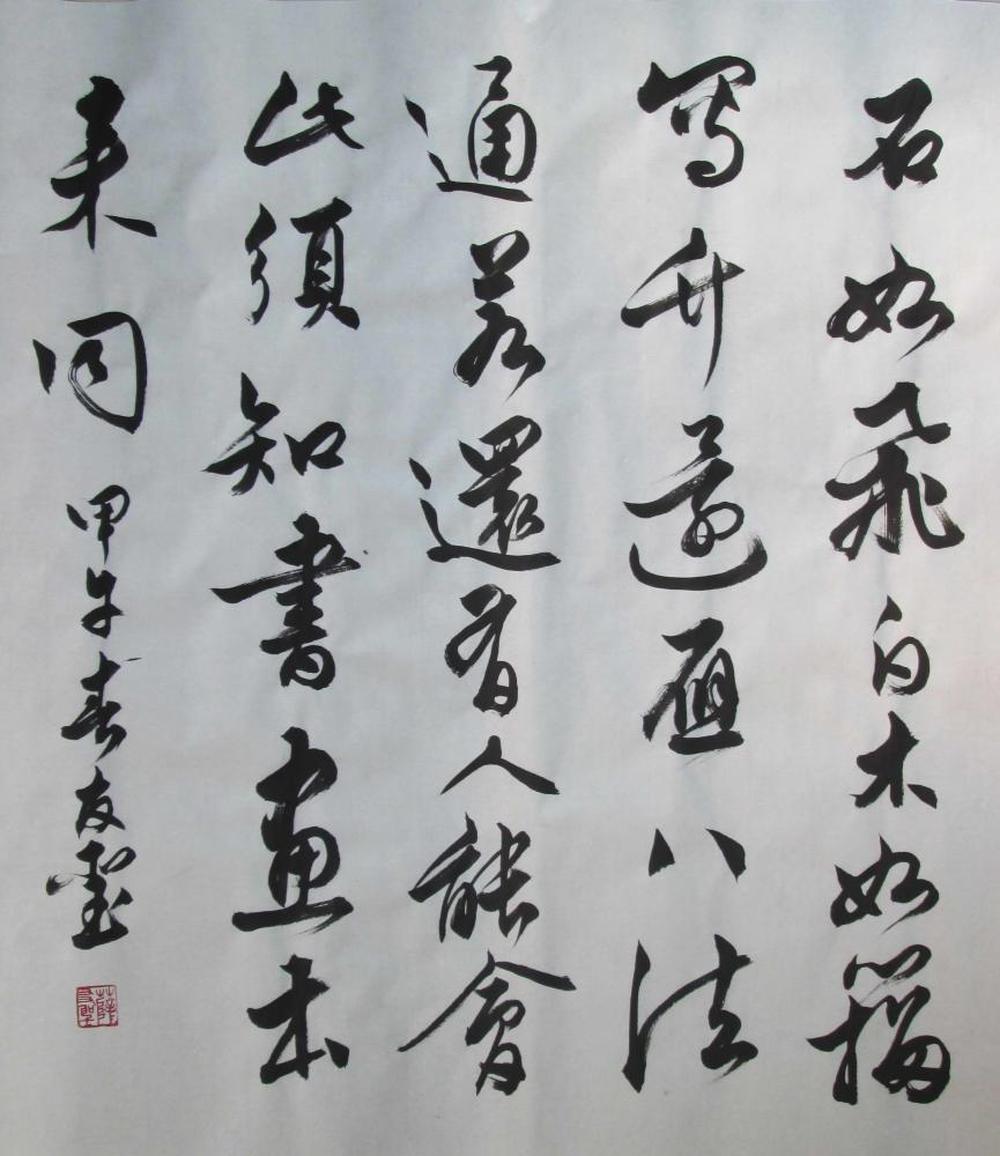 石如飛白木如籀
寫竹還應八法
通若還有人能會
此須知書畫本
来同
甲午春友聖
薛友聖